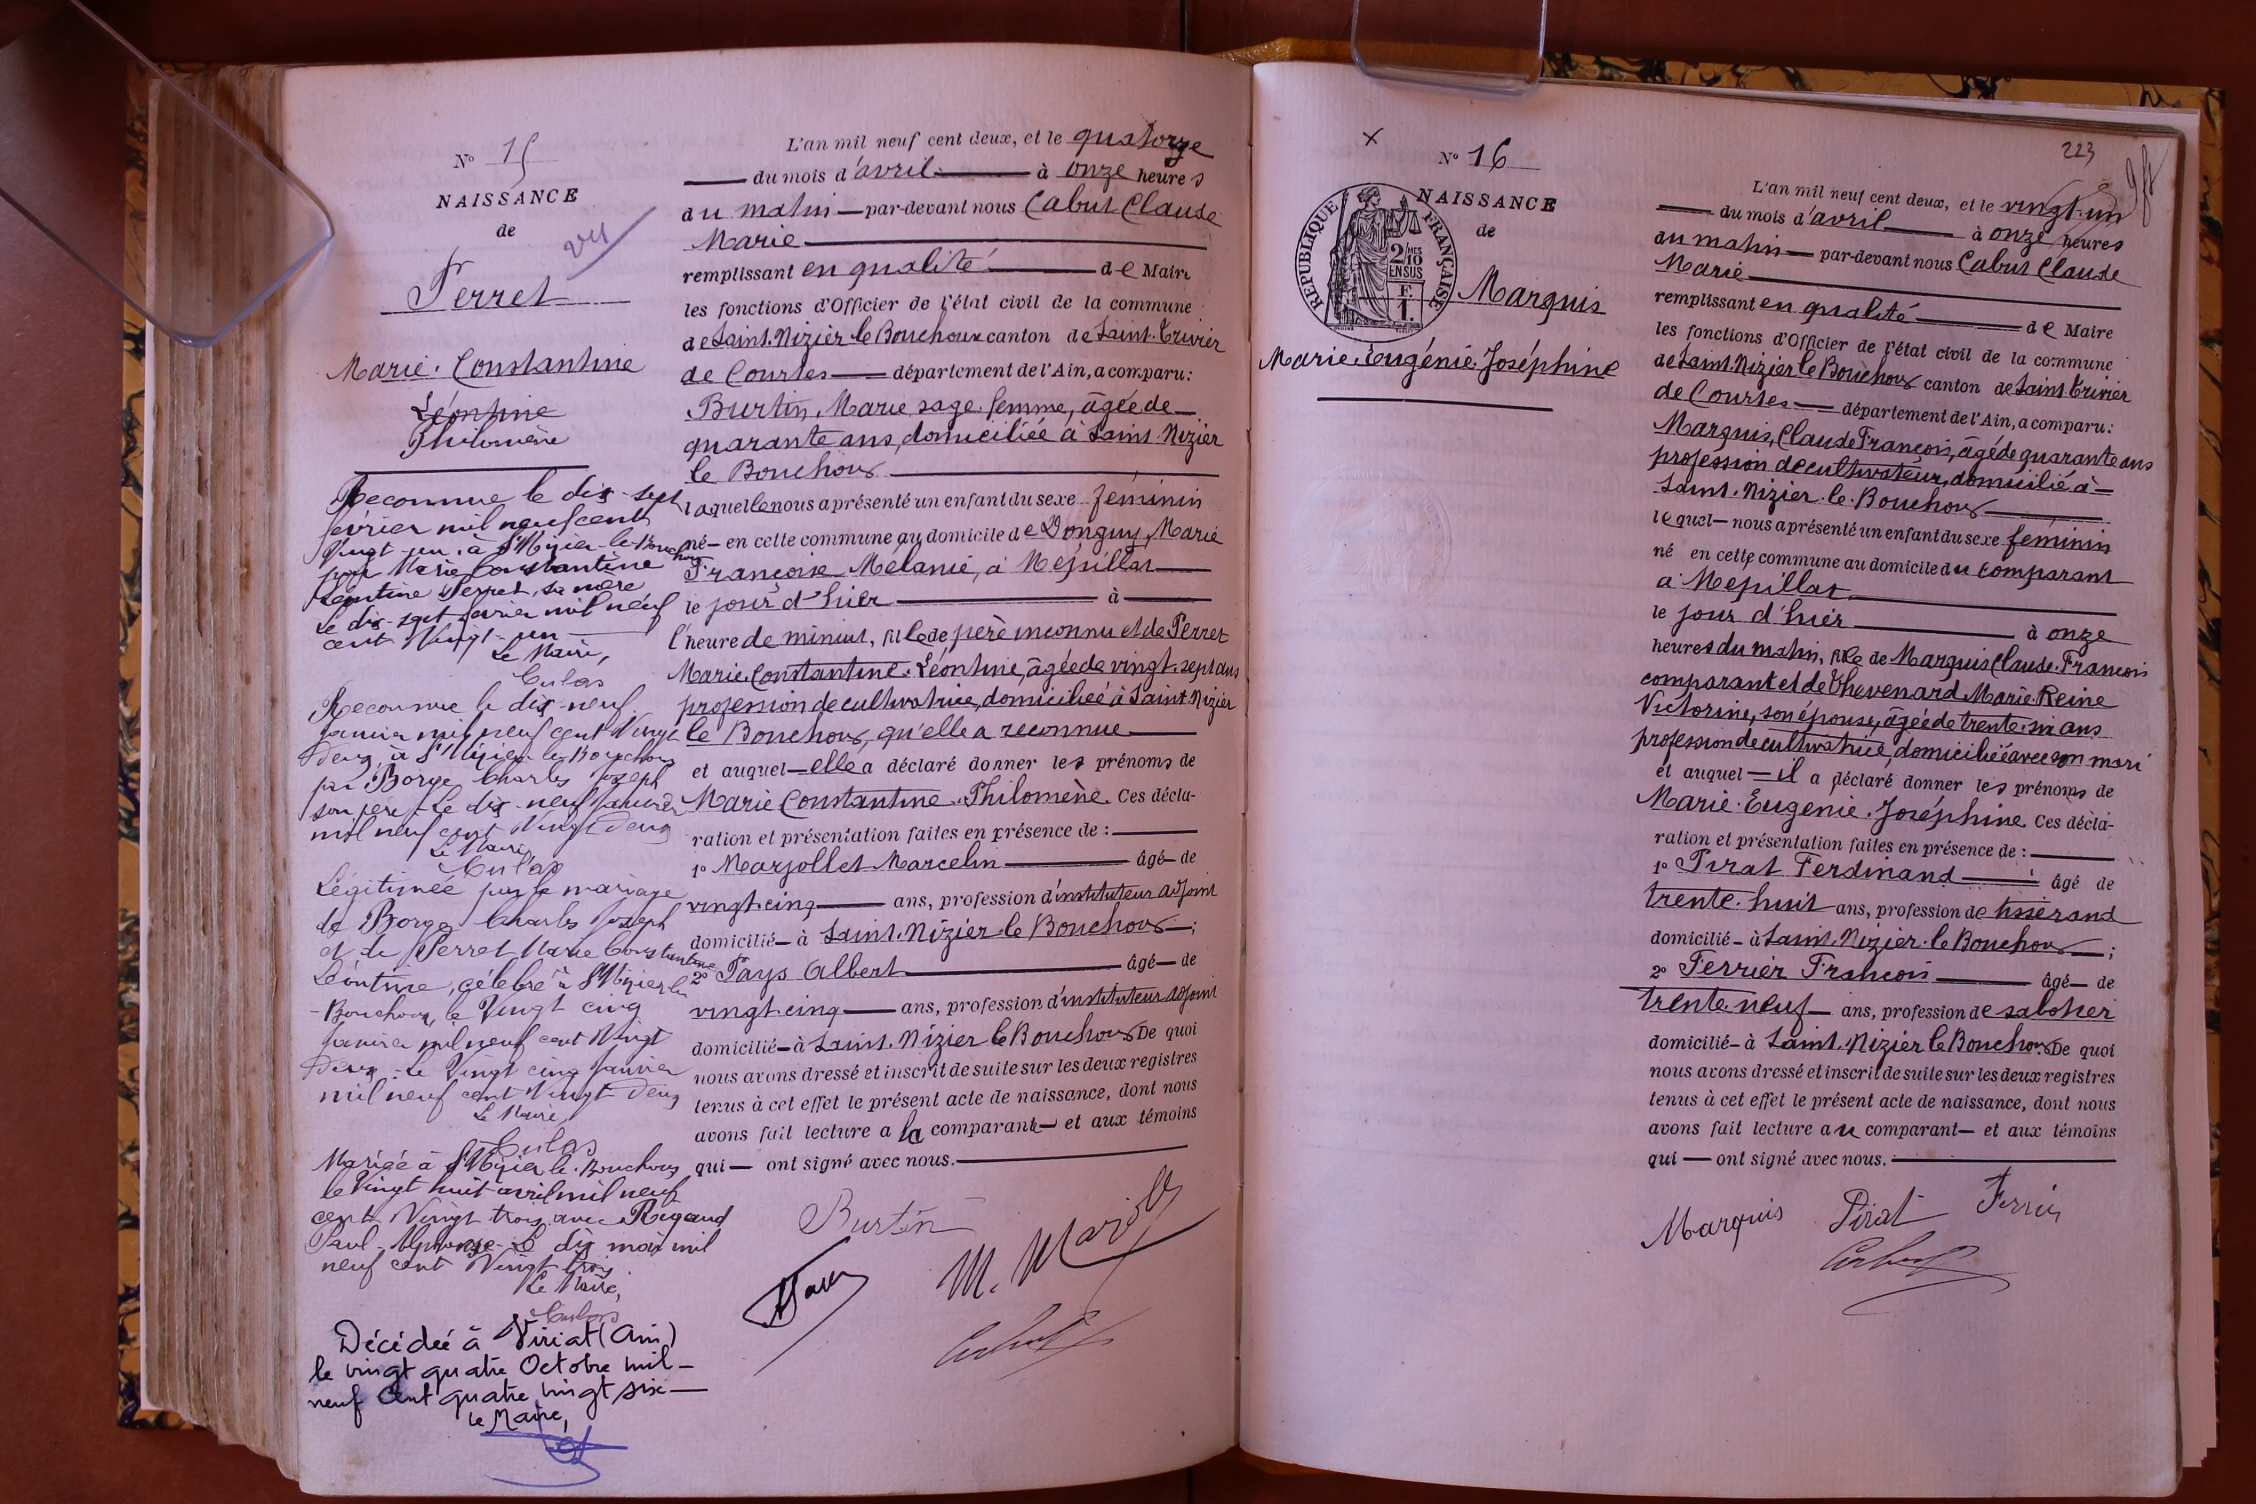 N° 15
NAISSANCE
de
vu
Perret
Marie. Constantine
Léontine
Philomène
Reconnue le dix-sept
février mil neuf cent
vingt-un, à St Nizier-le-Bouchoux
par Marie Constantine
Léontine Perret, sa mère
Le dix-sept février mil neuf
cent vingt-un
Le Maire,
Culas
Reconnue le dix-neuf
janvier mil neuf cent vingt
deux, à St Nizier-le-Bouchoux
par Borge Charles Joseph
son père. Le dix-neuf janvier
mil neuf cent vingt deux
Le Maire,
Culas
Légitimée par le mariage
de Borge Charles Joseph
et de Perret Marie Constantine
Léontine, célébré à St Nizier le
-Bouchoux, le vingt cinq
janvier mil neuf cent vingt
deux. Le vingt cinq janvier
mil neuf cent vingt deux
Le Maire,
Culas
Mariée à St Nizier-le-Bouchoux
le vingt huit avril mil neuf
cent vingt trois avec Rigaud
Paul-Alphonse. Le dix mai mil
neuf cent vingt trois
Le Maire,
Décédée à Viriat (Ain)
le vingt quatre Octobre mil-
neuf cent quatre vingt six
Le Maire,
L'an mil neuf cent deux, et le quatorze
du mois d'avril à onze heures
du matin par-devant nous Cabut Claude
Marie
remplissant en qualité de Maire
les fonctions d'Officier de l'état civil de la commune
de Saint. Nizier le Bouchoux canton de Saint. Trivier
de Courtes département de l'Ain, a comparu:
Burtin, Marie, sage. femme, âgée de
quarante ans, domiciliée à Saint. Nizier
le Bouchoux
laquelle nous a présenté un enfant du sexe féminin
né en cette commune au domicile de Donguy, Marie
Françoise Mélanie, à Mépillat
le jour d'hier à
l'heure de minuit, fille de père inconnu et de Perret
Marie. Constantine. Léontine, âgée de vingt. sept ans
profession de cultivatrice, domiciliée à Saint. Nizier
le Bouchoux, qu'elle a reconnue
et auquel elle a déclaré donner les prénoms de
Marie Constantine. Philomène. Ces décla-
ration et présentation faites en présence de :
1° Marjollet Marcelin âgé de
vingt. cinq ans, profession d'instituteur adjoint
domicilié à Saint. Nizier. le Bouchoux ;
2° Pays Albert âgé de
vingt. cinq ans, profession d'instituteur adjoint
domicilié à Saint. Nizier le Bouchoux De quoi
nous avons dressé et inscrit de suite sur les deux registres
tenus à cet effet le présent acte de naissance, dont nous
avons fait lecture a la comparante et aux témoins
qui ont signé avec nous.
Burtin
223
N° 16
NAISSANCE
de
REPUBLIQUE FRANÇAISE
2/10
EN SUS
F.
1.
Marquis
Marie. Eugénie. Joséphine
L'an mil neuf cent deux, et le vingt. un
du mois d'avril à onze heures
du matin par-devant nous Cabut Claude
Marie
remplissant en qualité de Maire
les fonctions d'Officier de l'état civil de la commune
de Saint. Nizier le Bouchoux canton de Saint. Trivier
de Courtes département de l'Ain, a comparu:
Marquis, Claude François, âgé de quarante ans
profession de cultivateur, domicilié à
Saint. Nizier. le. Bouchoux
lequel nous a présenté un enfant du sexe féminin
né en cette commune au domicile du comparant
à Mépillat
le jour d'hier à onze
heures du matin, fille de Marquis Claude. François
comparant et de Thevenard Marie. Reine
Victorine, son épouse, âgée de trente. six ans
profession de cultivatrice, domiciliée avec son mari
et auquel il a déclaré donner les prénoms de
Marie. Eugénie. Joséphine Ces décla-
ration et présentation faites en présence de :
1° Pirat Ferdinand âgé de
trente. huit ans, profession de tisserand
domicilié à Saint. Nizier. le Bouchoux ;
2° Ferrier François âgé de
trente neuf ans, profession de sabotier
domicilié à Saint. Nizier le Bouchoux De quoi
nous avons dressé et inscrit de suite sur les deux registres
tenus à cet effet le présent acte de naissance, dont nous
avons fait lecture au comparant et aux témoins
qui ont signé avec nous.
Marquis Pirat Ferrier